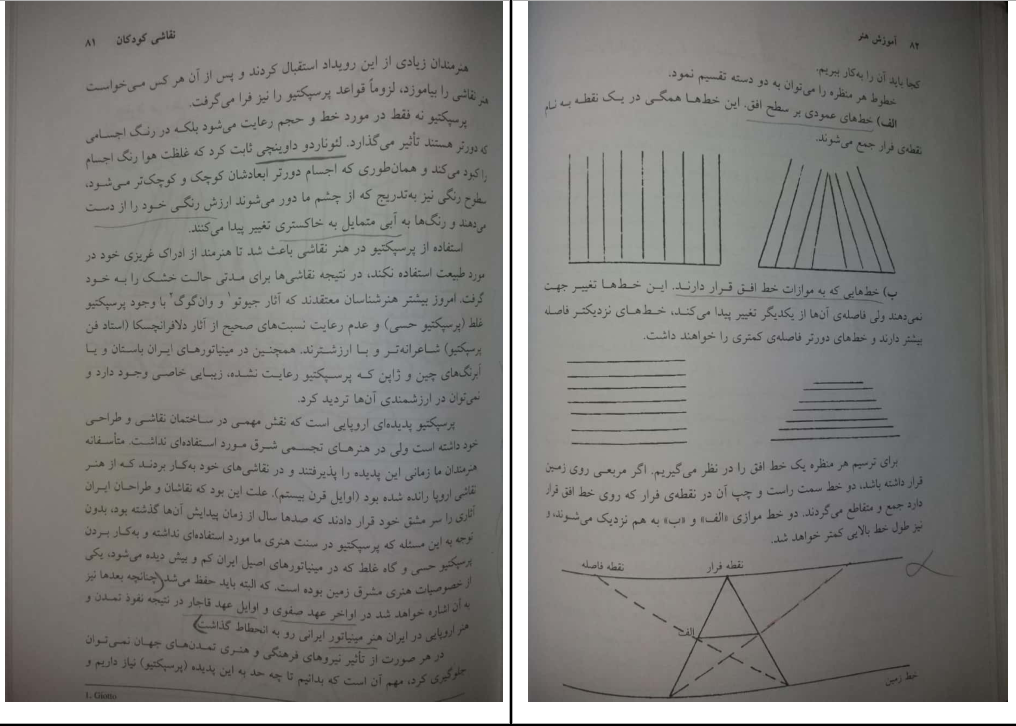 نقاشی کودکان ۸۱
هنرمندان زیادی از این رویداد استقبال کردند و پس از آن هر کس می‌خواست
هنر نقاشی را بیاموزد، لزوماً قواعد پرسپکتیو را نیز فرا می‌گرفت.
پرسپکتیو نه فقط در مورد خط و حجم رعایت می‌شود بلکه در رنگ اجسامی
که دورتر هستند تأثیر می‌گذارد. لئوناردو داوینچی ثابت کرد که غلظت هوا رنگ اجسام
را کبود می‌کند و همان‌طوری که اجسام دورتر ابعادشان کوچک و کوچک‌تر می‌شود،
سطوح رنگی نیز به‌تدریج که از چشم ما دور می‌شوند ارزش رنگی خود را از دست
می‌دهند و رنگ‌ها به آبی متمایل به خاکستری تغییر پیدا می‌کنند.
استفاده از پرسپکتیو در هنر نقاشی باعث شد تا هنرمند از ادراک غریزی خود در
مورد طبیعت استفاده نکند، در نتیجه نقاشی‌ها برای مدتی حالت خشک را به خود
گرفت. امروز بیشتر هنرشناسان معتقدند که آثار جیوتو۱ و وان‌گوگ۲ با وجود پرسپکتیو
غلط (پرسپکتیو حسی) و عدم رعایت نسبت‌های صحیح از آثار دلافرانچسکا (استاد فن
پرسپکتیو) شاعرانه‌تر و با ارزشترند. همچنین در مینیاتورهای ایران باستان و یا
آبرنگ‌های چین و ژاپن که پرسپکتیو رعایت نشده، زیبایی خاصی وجود دارد و
نمی‌توان در ارزشمندی آن‌ها تردید کرد.
پرسپکتیو پدیده‌ای اروپایی است که نقش مهمی در ساختمان نقاشی و طراحی
خود داشته است ولی در هنرهای تجسمی شرق مورد استفاده‌ای نداشت. متأسفانه
هنرمندان ما زمانی این پدیده را پذیرفتند و در نقاشی‌های خود به‌کار بردند که از هنر
نقاشی اروپا رانده شده بود (اوایل قرن بیستم). علت این بود که نقاشان و طراحان ایران
آثاری را سر مشق خود قرار دادند که صدها سال از زمان پیدایش آن‌ها گذشته بود، بدون
توجه به این مسئله که پرسپکتیو در سنت هنری ما مورد استفاده‌ای نداشته و به‌کار بردن
پرسپکتیو حسی و گاه غلط که در مینیاتورهای اصیل ایران کم و بیش دیده می‌شود، یکی
از خصوصیات هنری مشرق زمین بوده است. که البته باید حفظ می‌شد (چنانچه بعدها نیز
به آن اشاره خواهد شد در اواخر عهد صفوی و اوایل عهد قاجار در نتیجه نفوذ تمدن و
هنر اروپایی در ایران هنر مینیاتور ایرانی رو به انحطاط گذاشت)
در هر صورت از تأثیر نیروهای فرهنگی و هنری تمدن‌های جهان نمی‌توان
جلوگیری کرد، مهم آن است که بدانیم تا چه حد به این پدیده (پرسپکتیو) نیاز داریم و
1. Giotto
۸۲ آموزش هنر
کجا باید آن را به‌کار ببریم.
خطوط هر منظره را می‌توان به دو دسته تقسیم نمود.
الف) خط‌های عمودی بر سطح افق. این خط‌ها همگی در یک نقطه به نام
نقطه‌ی فرار جمع می‌شوند.
ب) خط‌هایی که به موازات خط افق قرار دارند. این خط‌ها تغییر جهت
نمی‌دهند ولی فاصله‌ی آن‌ها از یکدیگر تغییر پیدا می‌کند، خط‌های نزدیکتر فاصله
بیشتر دارند و خط‌های دورتر فاصله‌ی کمتری را خواهند داشت.
برای ترسیم هر منظره یک خط افق را در نظر می‌گیریم. اگر مربعی روی زمین
قرار داشته باشد، دو خط سمت راست و چپ آن در نقطه‌ی فرار که روی خط افق قرار
دارد جمع و متقاطع می‌گردند. دو خط موازی «الف» و «ب» به هم نزدیک می‌شوند، و
نیز طول خط بالایی کمتر خواهد شد.
نقطه فرار
نقطه فاصله
الف
خط زمین